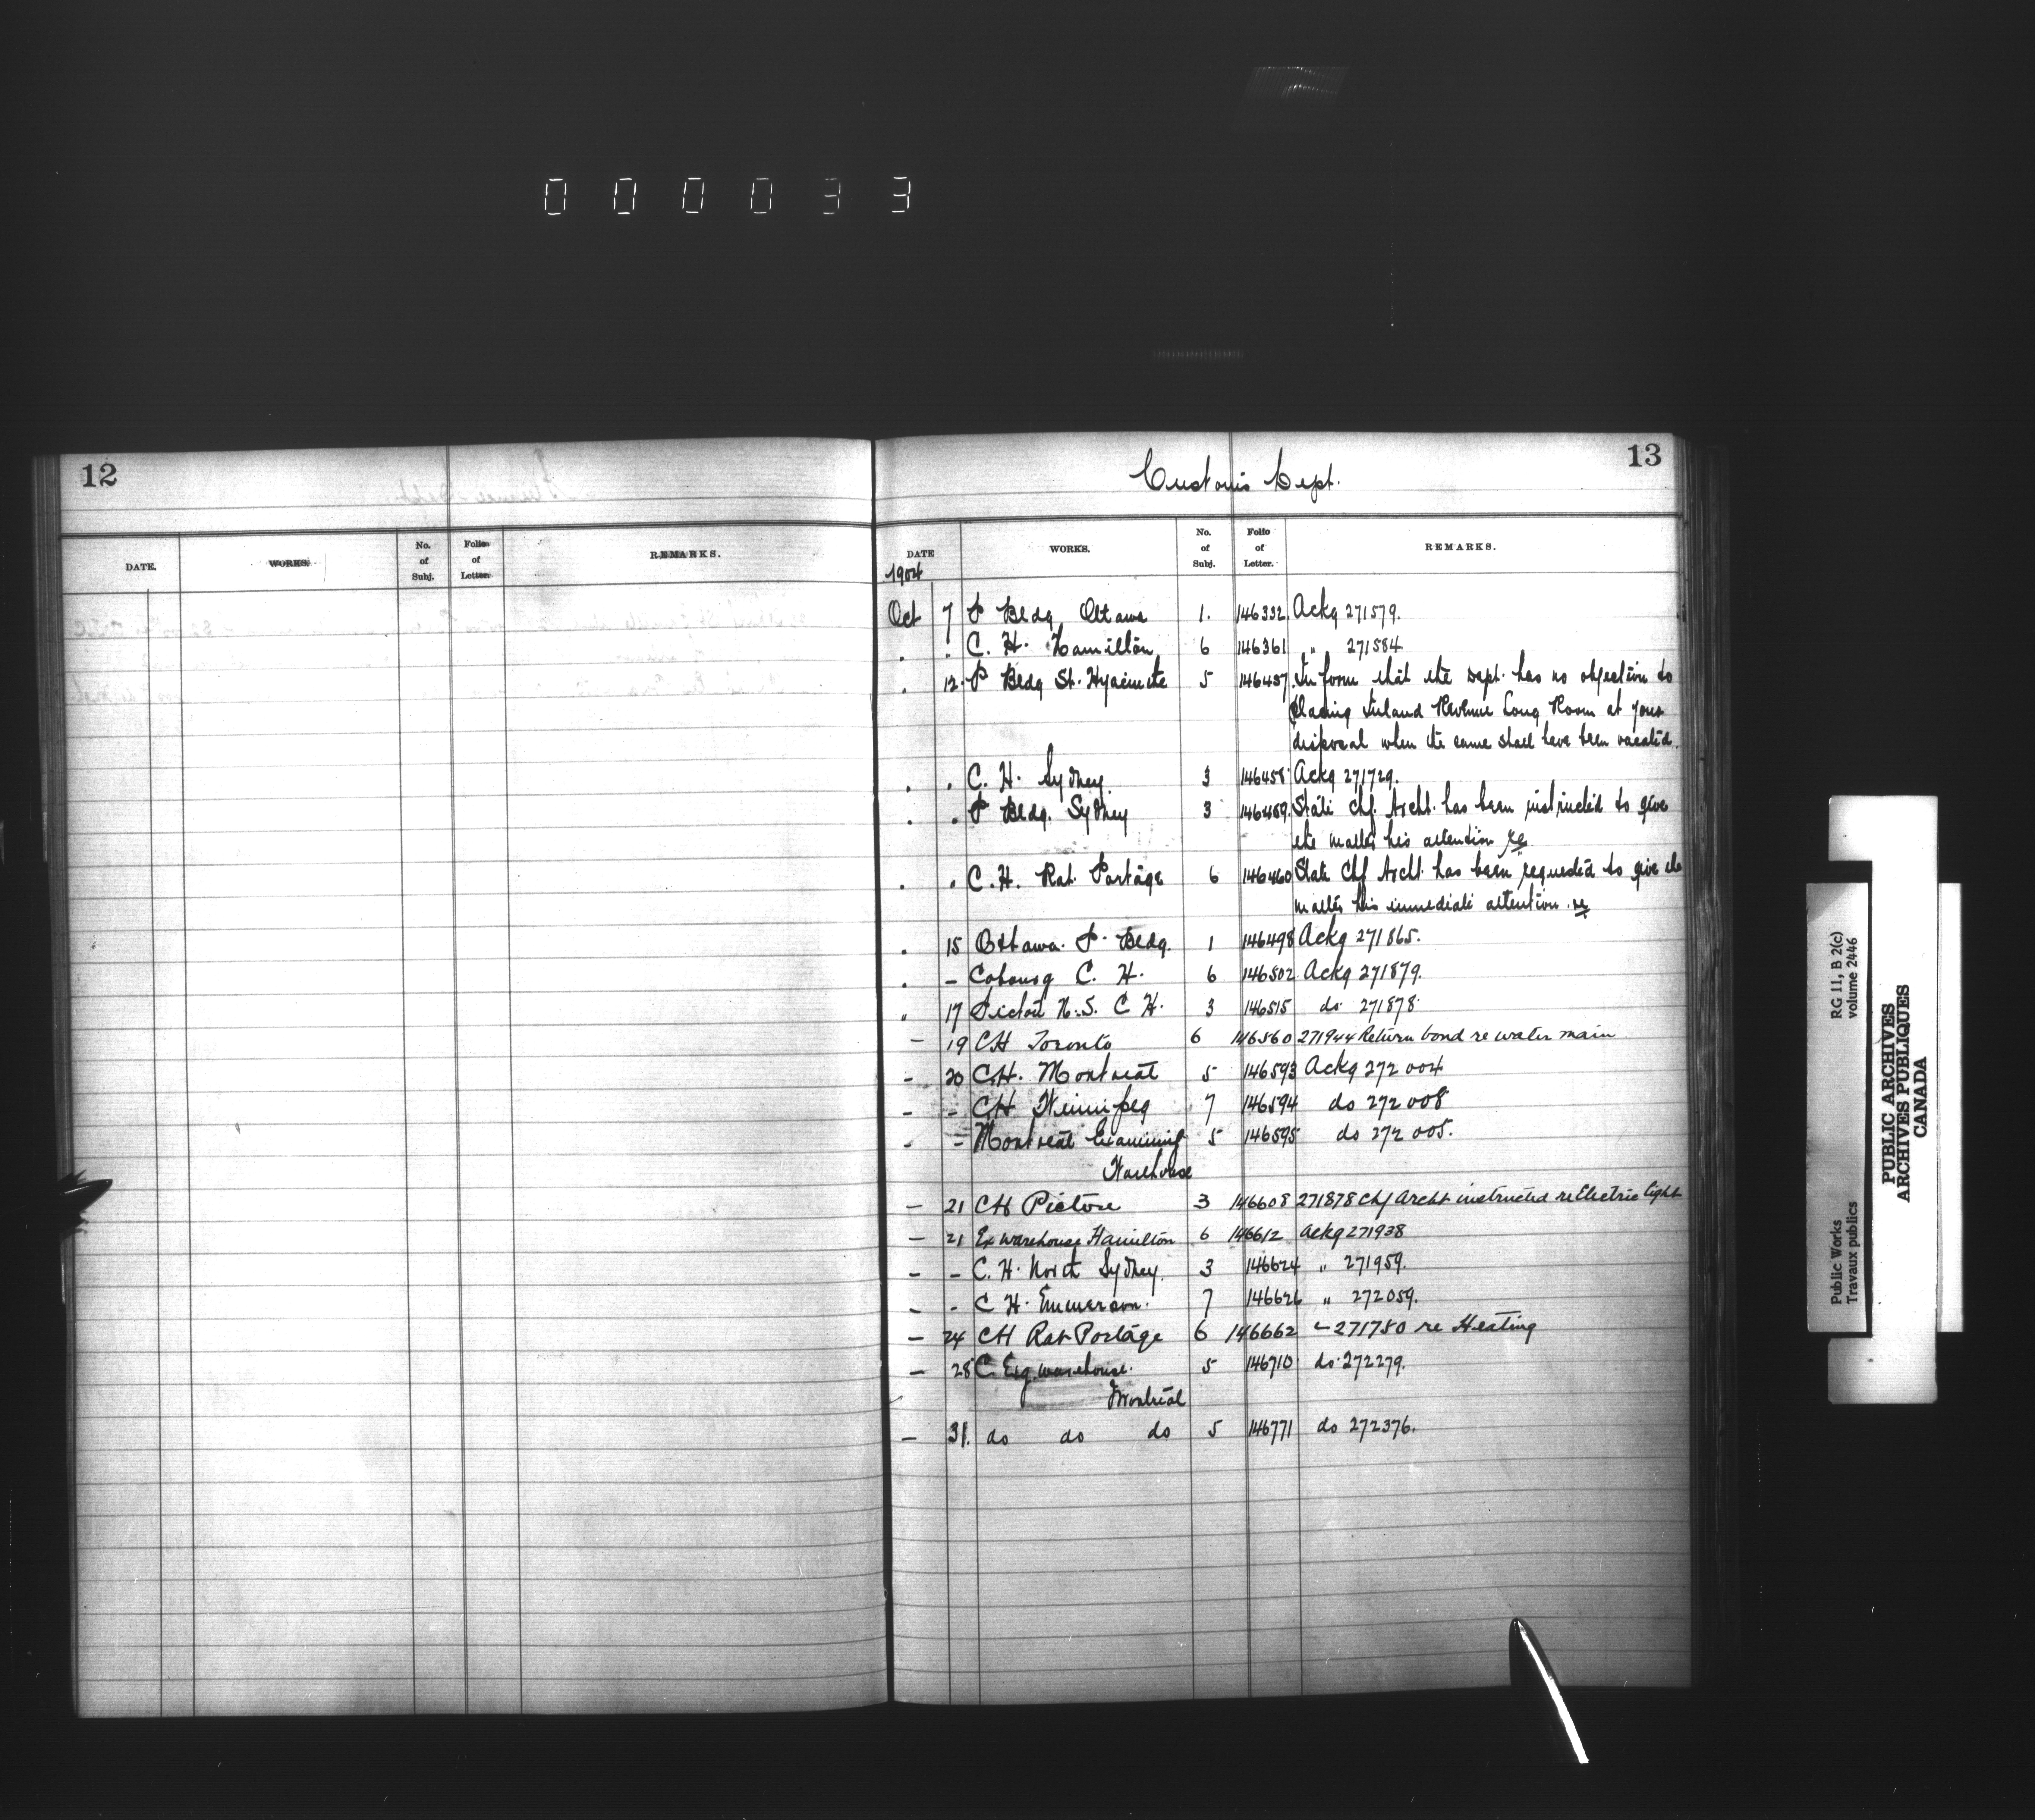 000033
12
DATE. WORKS. No. of Subj. Folio of Letter. REMARKS.
13
Customs Dept.
DATE WORKS. No. of Subj. Folio of Letter. REMARKS.
1904
Oct 7 P Bldg Ottawa 1. 146332 Ackg 271579.
" " C. H. Hamilton 6 146361 " 271584
" 12 P Bldg St. Hyacinthe 5 146457 Inform that the Dept. has no objection to
placing Inland Revenue Long Room at your
disposal when the same shall have been vacated.
" " C. H. Sydney. 3 146458 Ackg 271729.
" " P Bldg. Sydney 3 146459 State Chf. Archt. has been instructed to give
the matter his attention re
" " C. H. Rat Portage 6 146460 State Chf Archt. has been requested to give the
matter his immediate attention. re
" 15 Ottawa. P. Bldg. 1 146498 Ackg 271865.
" - Cobourg C. H. 6 146502 Ackg 271879.
" 17 Pictou N.S. C H. 3 146515 do 271878.
- 19 CH Toronto 6 146560 271944 Return bond re water main
- 20 C.H. Montreal 5 146593 Ackg 272004
- - CH Winnipeg 7 146594 do 272008
- - Montreal Examining 5 146595 do 272005.
Warehouse
- 21 CH Pictou 3 146608 271878 Chf Archt instructed re Electric light
- 21 Ex warehouse Hamilton 6 146612 Ackg 271938
- - C. H. North Sydney. 3 146624 " 271959.
- - C H. Emmerson. 7 146626 " 272059.
- 24 CH Rat Portage 6 146662 - 271750 re Heating
- 28 C Exg. warehouse. 5 146710 do 272279.
Montreal
- 31. do do do 5 146771 do 272376.
RG 11, B 2(c)
volume 2446
Public Works
Travaux publics
PUBLIC ARCHIVES
ARCHIVES PUBLIQUES
CANADA